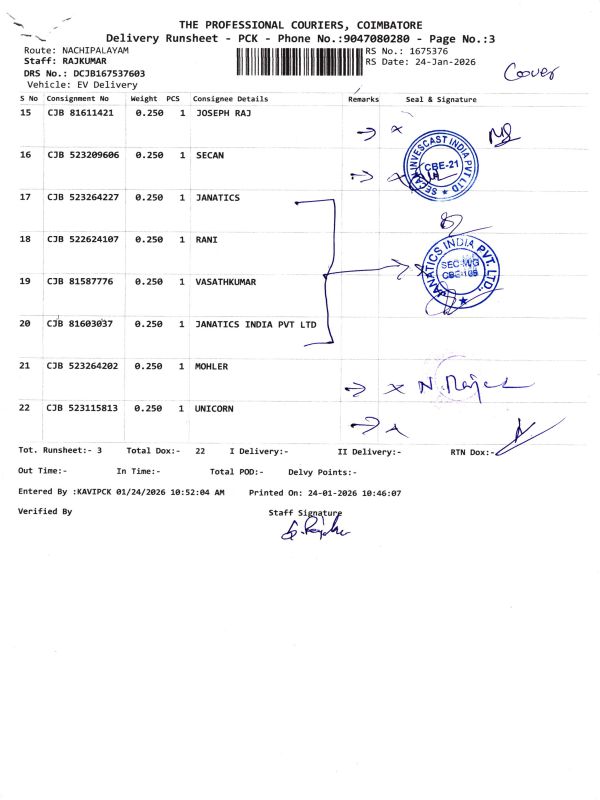 THE PROFESSIONAL COURIERS, COIMBATORE
Delivery Runsheet - PCK - Phone No.:9047080280 - Page No.:3
Route: NACHIPALAYAM RS No.: 1675376
Staff: RAJKUMAR RS Date: 24-Jan-2026
DRS No.: DCJB167537603
Vehicle: EV Delivery
Cover
S No Consignment No Weight PCS Consignee Details Remarks Seal & Signature
15 CJB 81611421 0.250 1 JOSEPH RAJ
16 CJB 523209606 0.250 1 SECAN
SECAN INVESCAST INDIA PVT LTD ★
CBE-21
17 CJB 523264227 0.250 1 JANATICS
18 CJB 522624107 0.250 1 RANI
JANATICS INDIA PVT. LTD., ★
SEC-M/G
CBE-109
19 CJB 81587776 0.250 1 VASATHKUMAR
20 CJB 81603037 0.250 1 JANATICS INDIA PVT LTD
21 CJB 523264202 0.250 1 MOHLER
22 CJB 523115813 0.250 1 UNICORN
Tot. Runsheet:- 3 Total Dox:- 22 I Delivery:- II Delivery:- RTN Dox:-
Out Time:- In Time:- Total POD:- Delvy Points:-
Entered By :KAVIPCK 01/24/2026 10:52:04 AM Printed On: 24-01-2026 10:46:07
Verified By Staff Signature